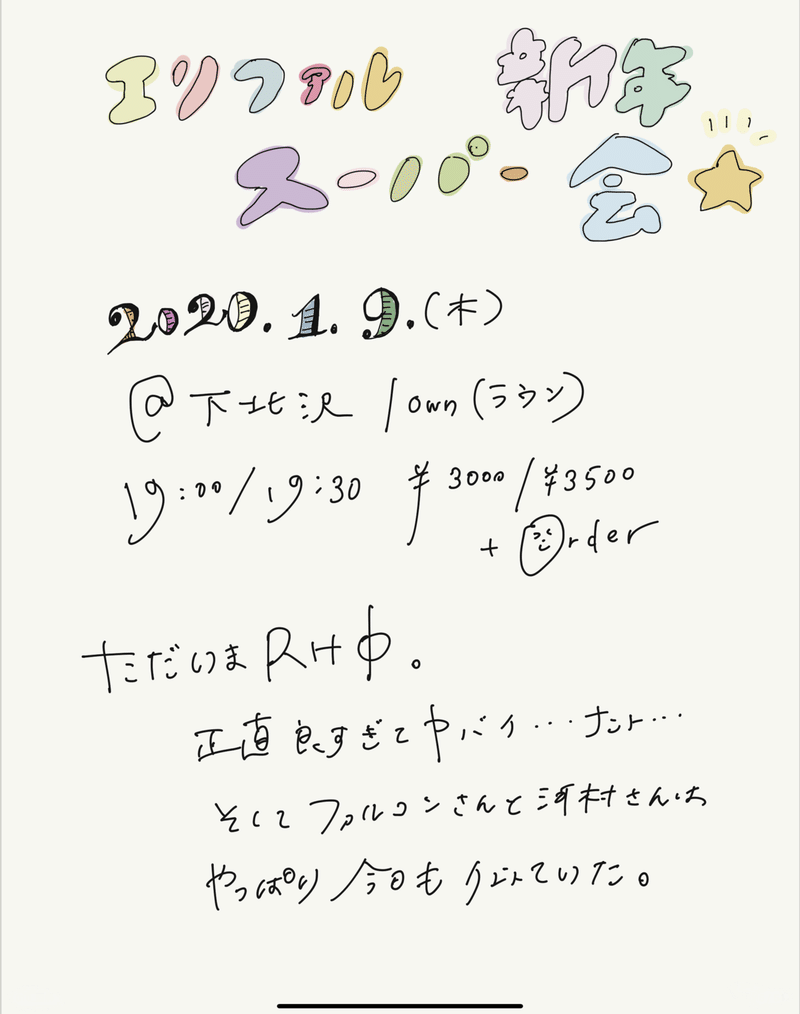 エリファル 新年
スーパー会☆
2020.1.9.(木)
@下北沢 lown(ラウン)
19:00/19:30 ¥3000/¥3500
+ Order
ただいまRH中。
正直良すぎてヤバイ…ナント…
そしてファルコンさんと河村さんは
やっぱり今日も ていた。